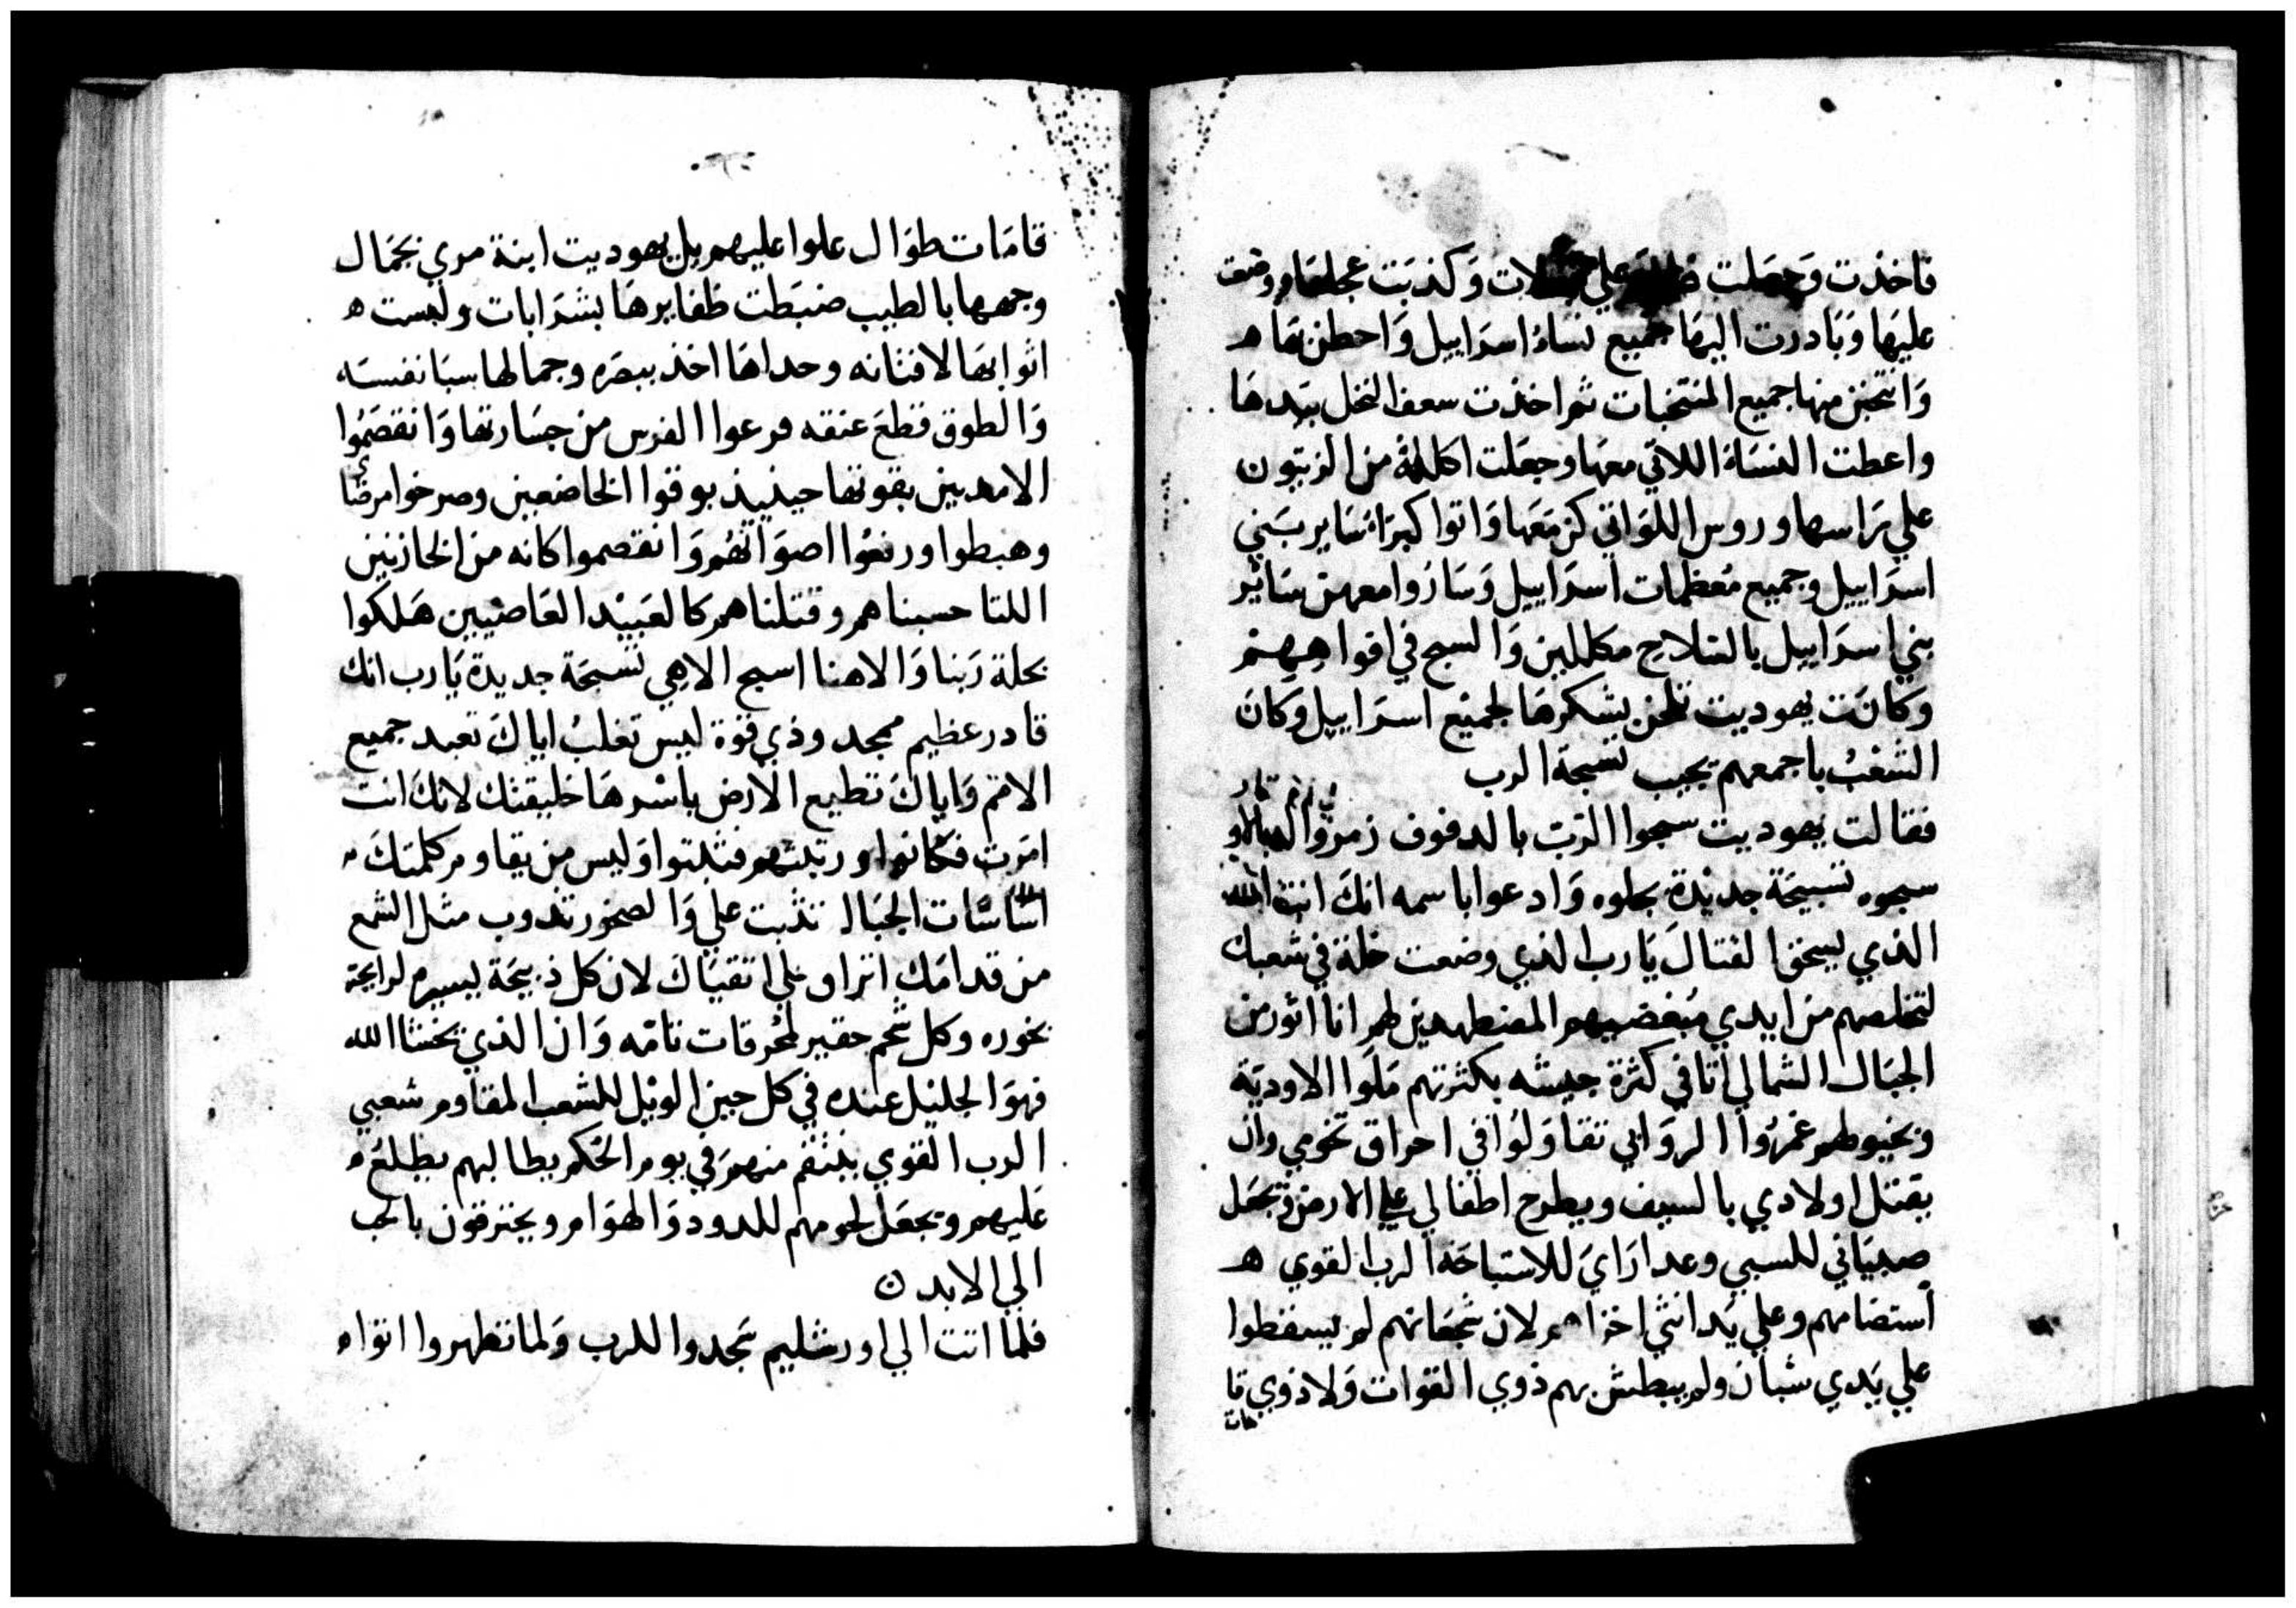 فاخذت وجعلت علي وكذبت عجلها ووضعت
عليها وبادرت اليها جميع نساء اسراييل واحطن بها
وانتخبن منها جميع المنتخبات ثم اخذت سعف النخل بيدها
واعطت النساة اللاتي معها وجعلت اكاللة من الزيتون
علي راسها وروس اللواتي كن معها واتوا كبراء ساير بني
اسراييل وجميع معظمات اسراييل وساروا معهن ساير
بني اسراييل بالسلاح مكللين والسبح في افواههم
وكانت يهوديت تلحن بشكرها لجميع اسراييل وكان
الشعب باجمعهم يجيب تسبحة الرب
فقالت يهوديت سبحوا الرب بالدفوف زمروا
سبحوه تسبيحة جديدة بجلوه وادعوا باسمه انك انت الله
الذي يسحق القتال يارب الذي وضعت خلة في شعبك
لتخلصهم من ايدي مبغضيهم المضطهدين لهم انا اثور من
الجبال الشمالي اتا في كثرة جيشه بكثرتهم ملوا الاودية
وبخيولهم غمروا الروابي تقاولوا في احراق تخومي وان
يقتل اولادي بالسيف ويطرح اطفالي علي الارض وتجعل
صبياني للسبي وعداراي للاستباحة الرب القوي
استضامهم وعلي يد انثي اخزاهم لان شجعانهم لم يسقطوا
علي يدي شبان ولم يبطش بهم ذوي القوات ولا ذوي قا
مات
قامات طوال علوا عليهم بل يهوديت ابنة مري بجمال
وجهها بالطيب ضبطت ظفايرها بشرابات ولبست
اثوابها لافتانه وحداها اخذ ببصره وجمالها سبا نفسه
والطوق قطع عنقه فرعوا الفرس من جسارتها وانقصموا
الامديين بقوتها حينيذ بوقوا الخاضعين وصرخوا مرضا
وهبطوا ورفعوا اصواتهم وانقصموا كانه من الخازنين
اللتا حسبناهم وقتلناهم كالعبيد العاصيين هلكوا
بحلة ربنا والاهنا اسبح الاهي تسبحة جديدة يارب انك
قادر عظيم ممجد وذي قوة ليس تغلب اياك تعبد جميع
الامم واياك تطيع الارض باسرها خليقتك لانك انت
امرت فكانوا ورتبتهم فثبتوا وليس من يقاوم كلمتك
اساسات الجبال تثبت علي والصخور تدوب مثل الشمع
من قدامك اتراوي علي اتقياك لان كل ذبيحة يسيرة لرايحة
بخوره وكل شحم حقير لمحرقات تامه وان الذي يخشا الله
فهو الجليل عنده في كل حين الويل للشعب المقاوم شعبي
الرب القوي ينتقم منهم في يوم الحكم يطالبهم يطلع
عليهم ويجعل لحومهم للدود والهوام ويحترقون بالحب
الي الابد
فلما اتت الي اورشليم سجدوا للرب ولما تطهروا اتواه